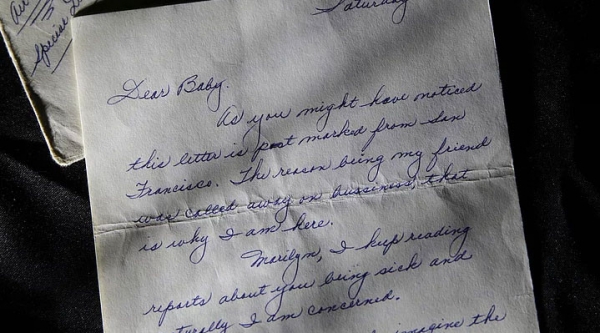 Air
Special
Saturday
Dear Baby.
As you might have noticed
this letter is post marked from San
Francisco. The reason being my friend
was called away on bussiness, that
is why I am here.
Marilyn, I kup reading
reports about you being sick and
turally I am concerned.
imagine the